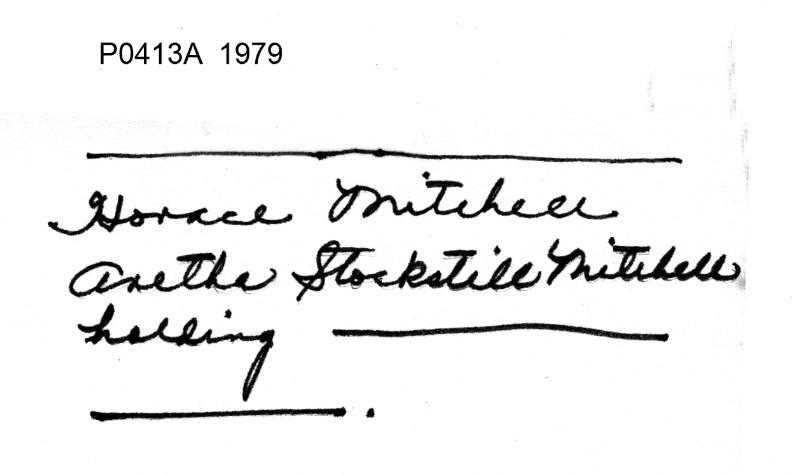 P0413A 1979
Horace Mitchell
Aretha Stockstill Mitchell
holding
.